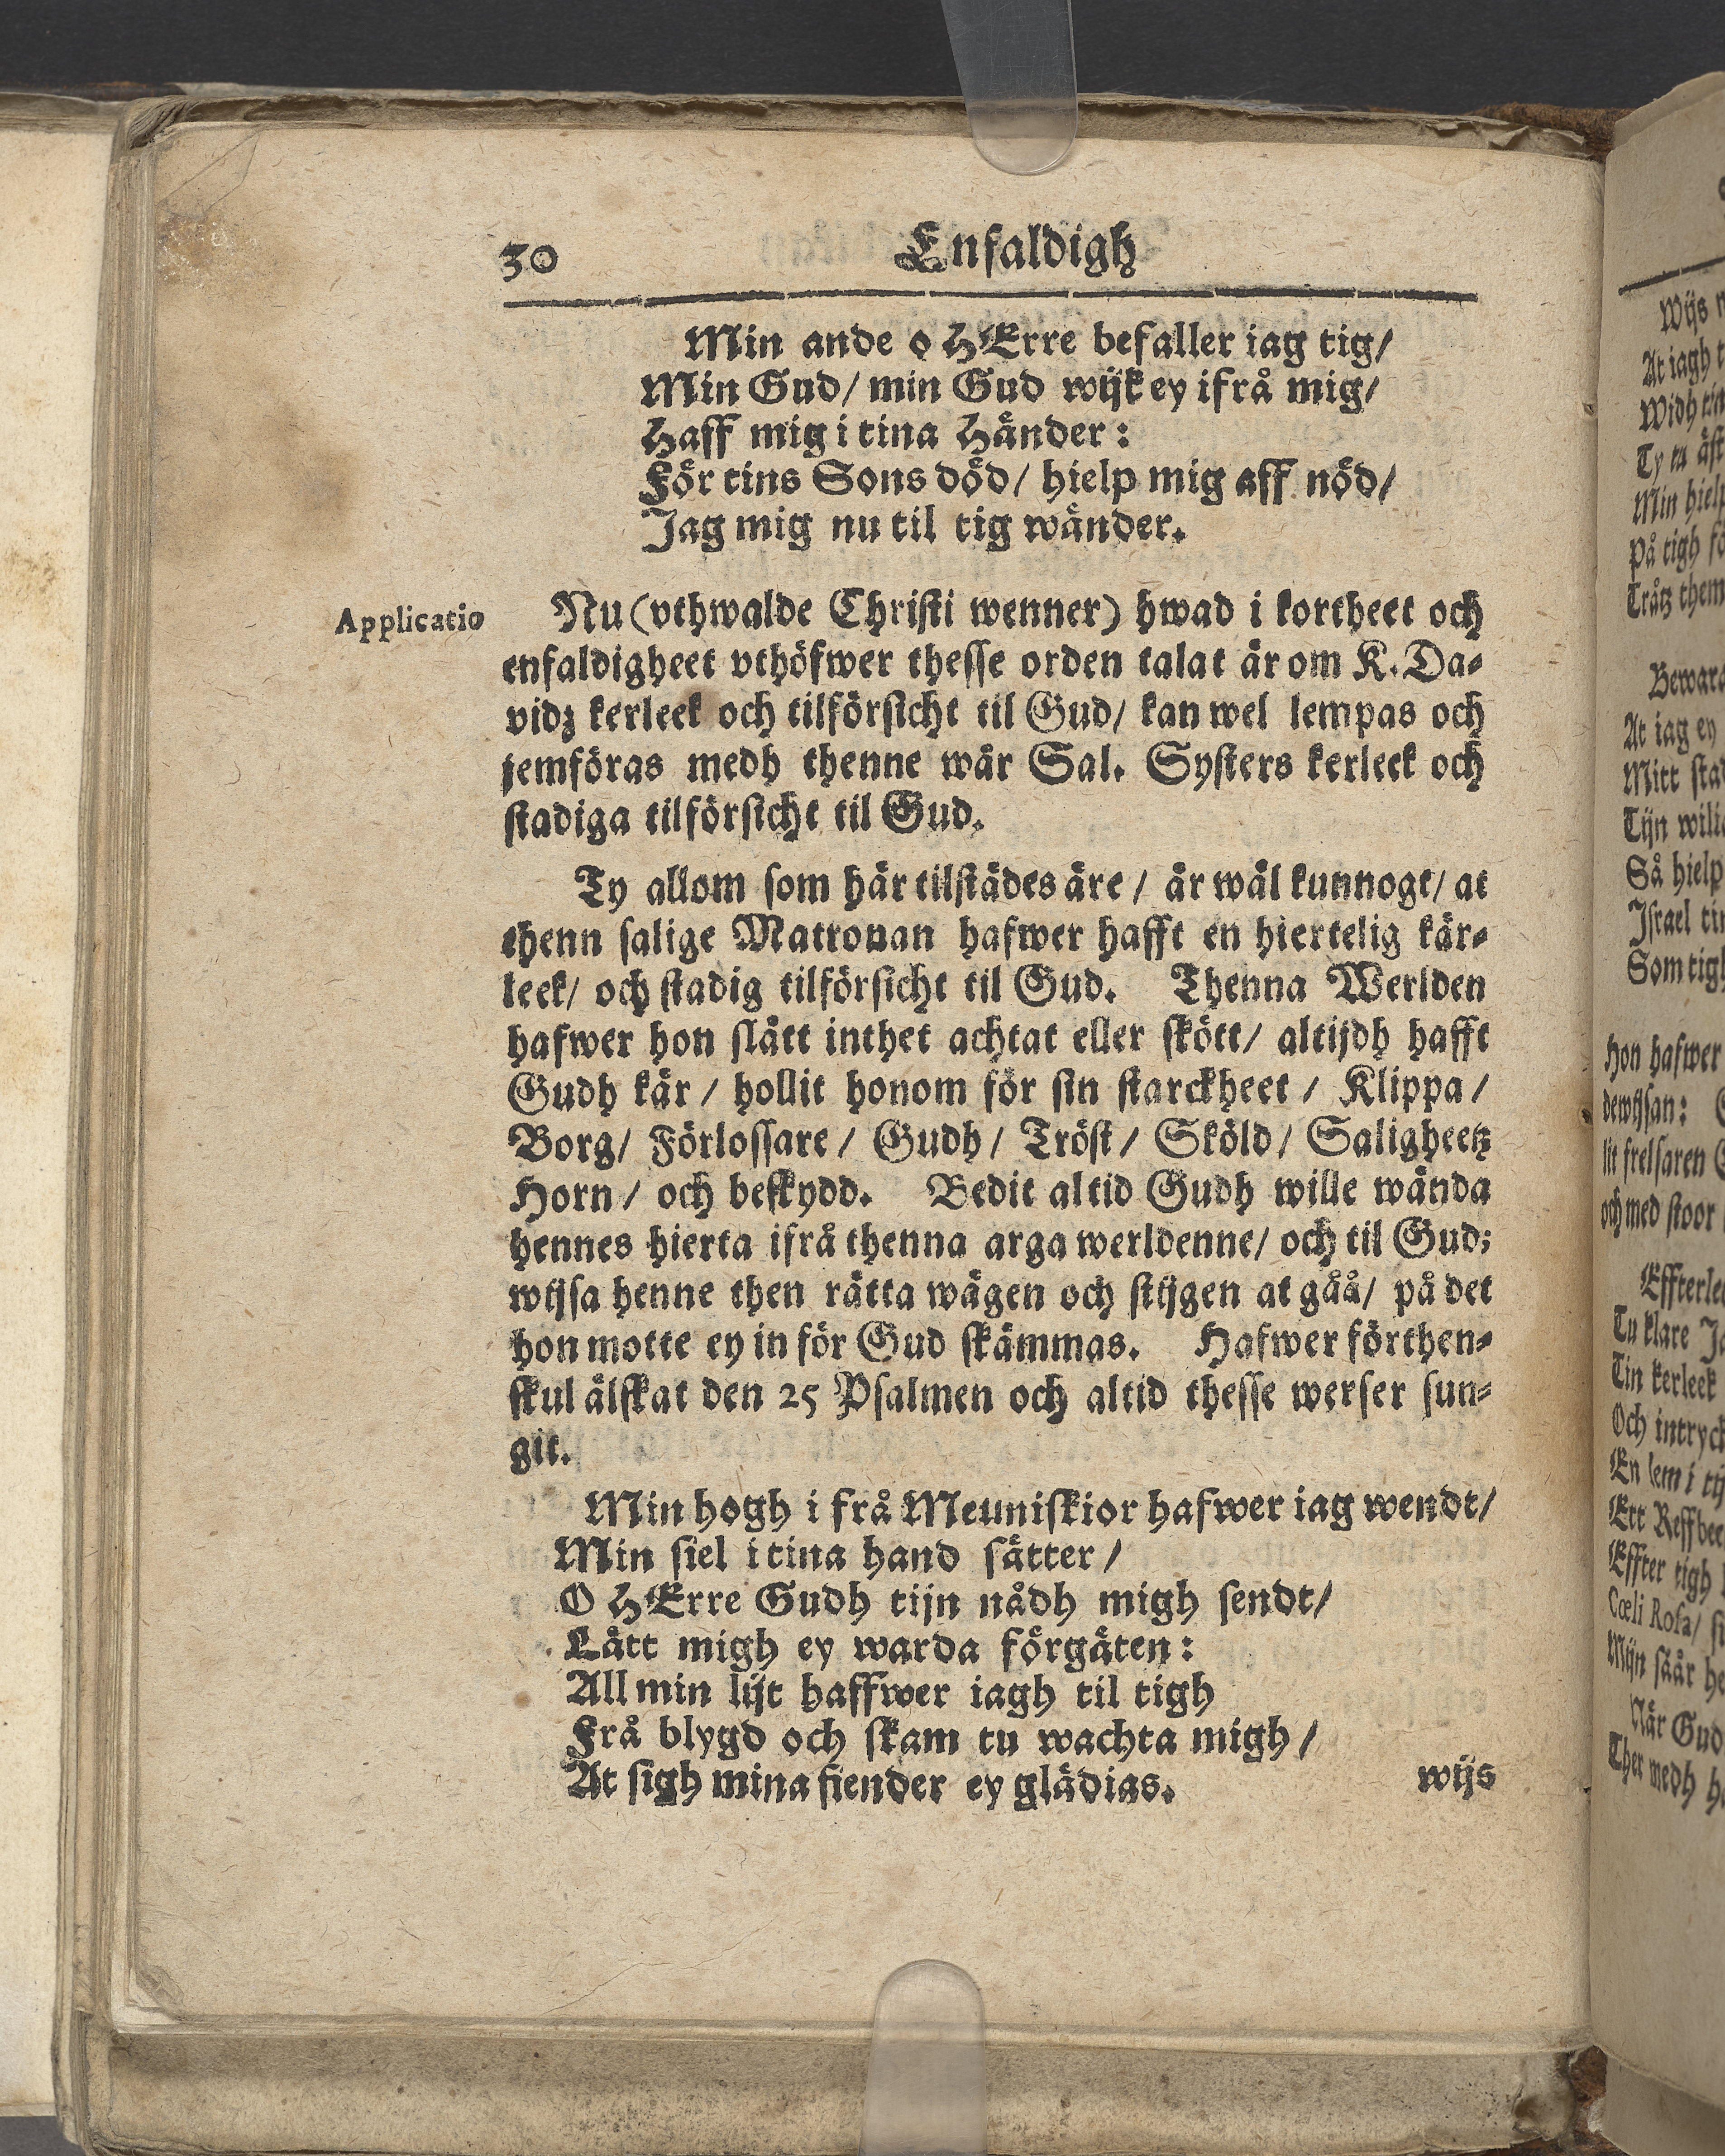 30 Enfaldigh
Min ande o HErre befaller iag tig/
Min Gud/ min Gud wijk ey ifrå mig/
Haff mig i tina Händer:
För tins Sons död/ hielp mig aff nöd/
Jag mig nu til tig wänder.
Applicatio
Nu (vthwalde Christi wenner) hwad i kortheet och
enfaldigheet vthöfwer thesse orden talat är om K. Da-
vidz kerleek och tilförsicht til Gud/ kan wel lempas och
jemföras medh thenne wår Sal. Systers kerleek och
stadiga tilförsicht til Gud.
Ty allom som här tilstädes äre/ är wäl kunnogt/ at
thenn salige Matronan hafwer hafft en hiertelig kär-
leek/ och stadig tilförsicht til Gud. Thenna Werlden
hafwer hon slått inthet achtat eller skött/ altijdh hafft
Gudh kär/ hollit honom för sin starckheet/ Klippa/
Borg/ Förlossare/ Gudh/ Tröst/ Sköld/ Saligheetz
Horn/ och beskydd. Bedit altid Gudh wille wända
hennes hierta ifrå thenna arga werldenne/ och til Gud;
wijsa henne then rätta wägen och stijgen at gåå/ på det
hon motte ey in för Gud skämmas. Hafwer förthen-
skul älskat den 25 Psalmen och altid thesse werser sun-
git.
Min hogh i frå Meuniskior hafwer iag wendt/
Min siel i tina hand sätter/
O HErre Gudh tijn nådh migh sendt/
Lått migh ey warda förgäten:
All min lijt haffwer iagh til tigh
Frå blygd och skam tu wachta migh/
At sigh mina fiender ey glädias.
wijs
Wijs
At iagh
Widh
Ty tu äst
Min hielp
På tigh
Trätz them
Bewara
At iag ey
Mitt
Tijn
Så hielp
Israel
Som tigh
Hon hafwer
dewijsan:
lit frelsaren
och med stoor
Tu klare
Tin kerleek
Och
En lem i
Ett
Effter tigh
Cœli Rosa/
Mijn såår
När Gud
Ther medh